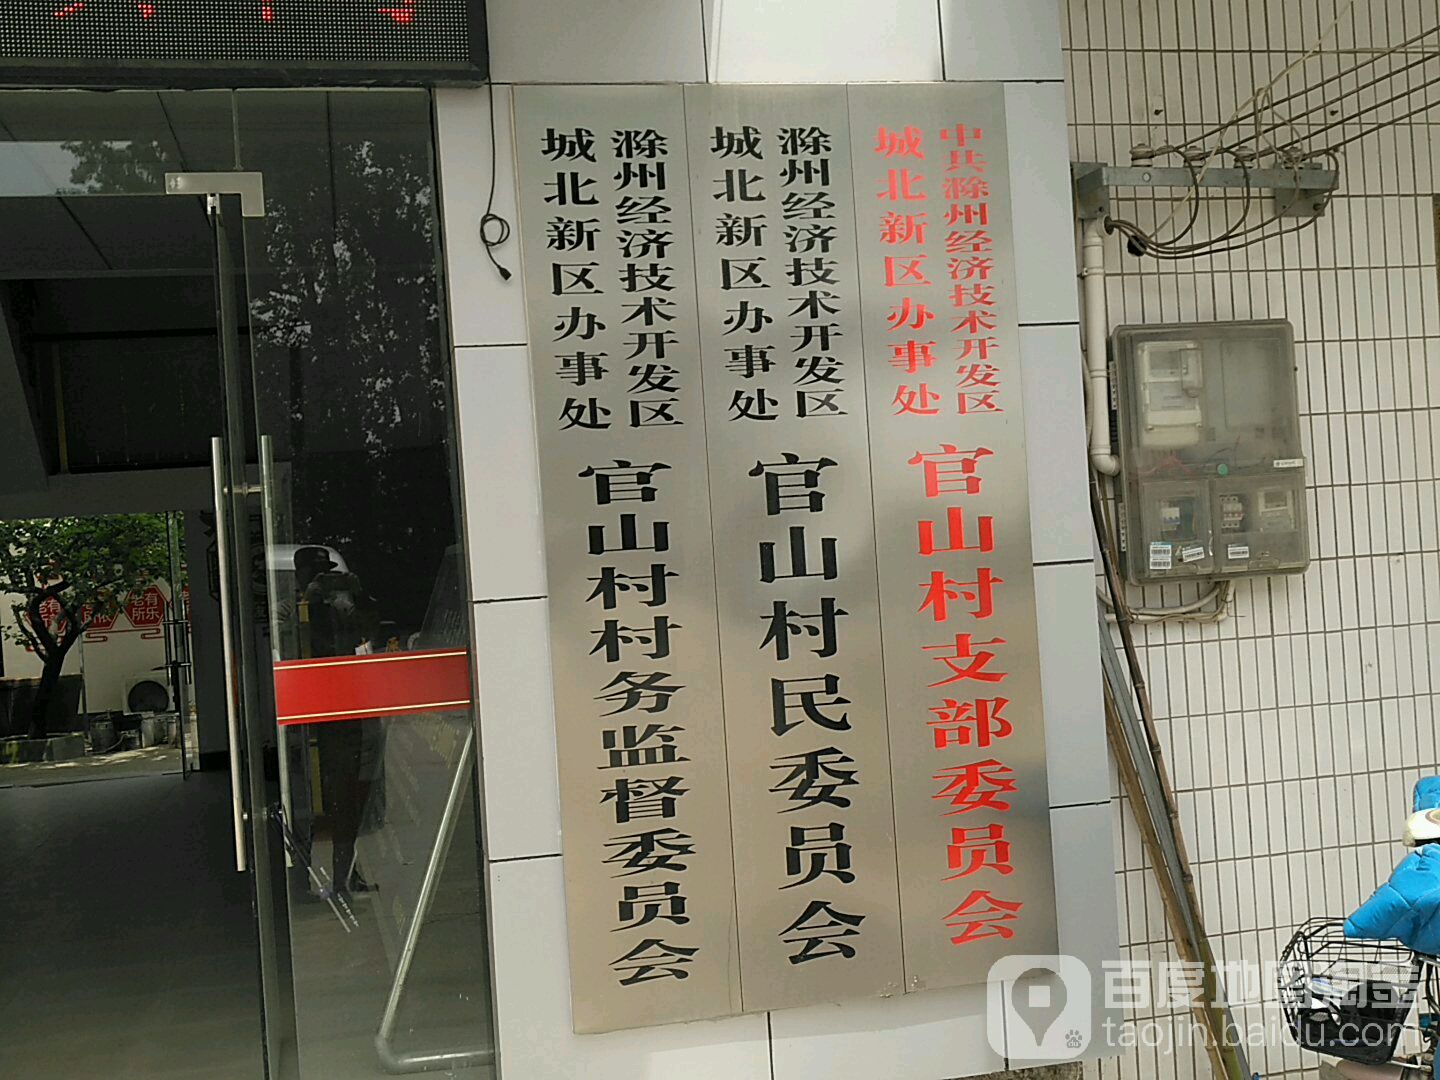 中共滁州经济技术开发区
城北新区办事处
官山村支部委员会
滁州经济技术开发区
城北新区办事处
官山村民委员会
滁州经济技术开发区
城北新区办事处
官山村村务监督委员会
老有
所乐
百度地图淘金
taojin.baidu.com